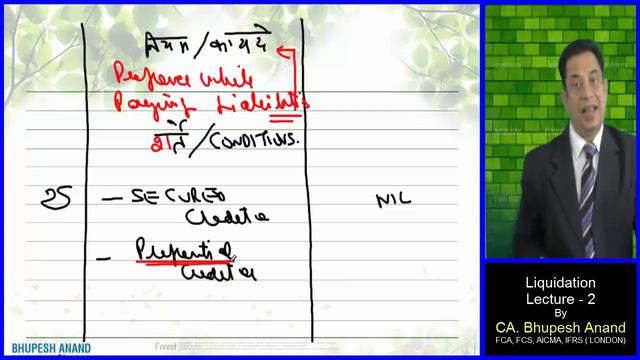 नियम / कायदे
Preference while
Paying Liabilities
शर्त / CONDITIONS.
25 - SECURED Creditor NIL
- Preferential
Creditor
Liquidation
Lecture - 2
By
CA. Bhupesh Anand
FCA, FCS, AICMA, IFRS ( LONDON)
BHUPESH ANAND
Forest